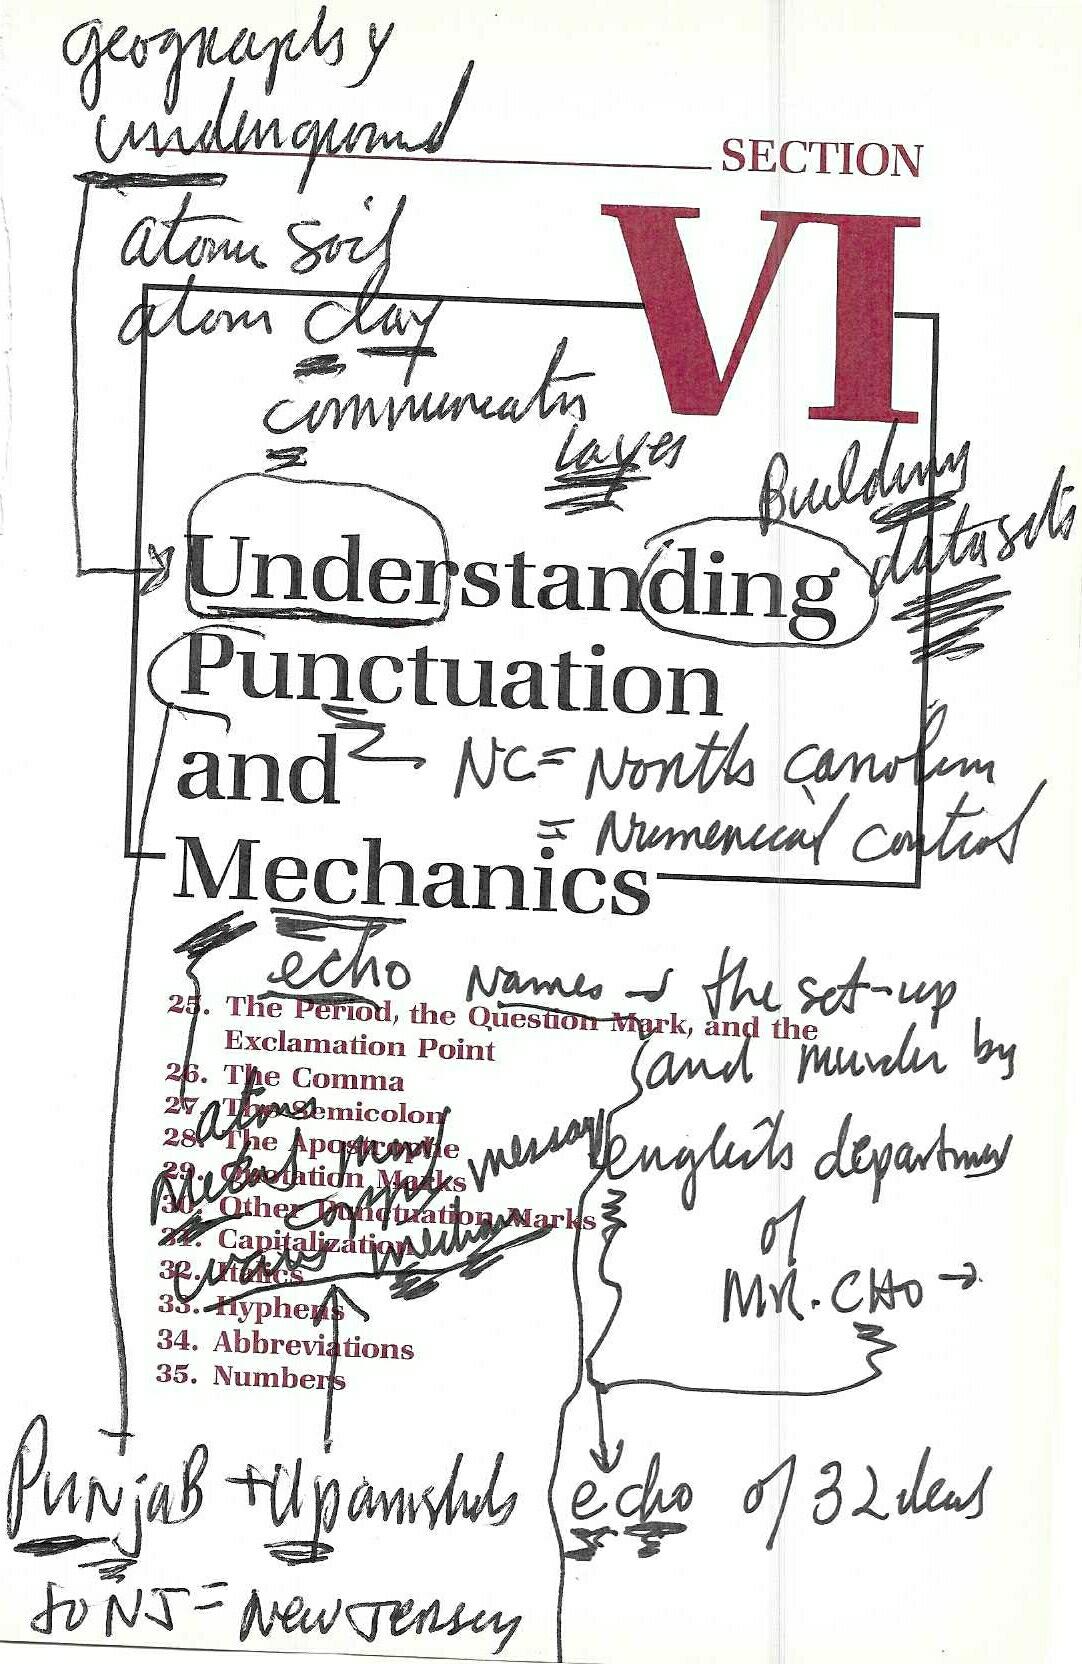 geography
underground
SECTION
VI
atomic soil
atom clay
communication
layes
Building
datasets
Understanding
Punctuation
and
NC = North carolin
= Numerical control
Mechanics
echo Names → the set-up
and murder by
english department
of
MR. CHO →
25. The Period, the Question Mark, and the
Exclamation Point
26. The Comma
27. The Semicolon
28. The Apostrophe
29. Quotation Marks
30. Other Punctuation Marks
31. Capitalization
32. Italics
33. Hyphens
34. Abbreviations
35. Numbers
atoms
message
PUNjaB + Upanishads
echo of 32 dead
so NJ = New Jersey